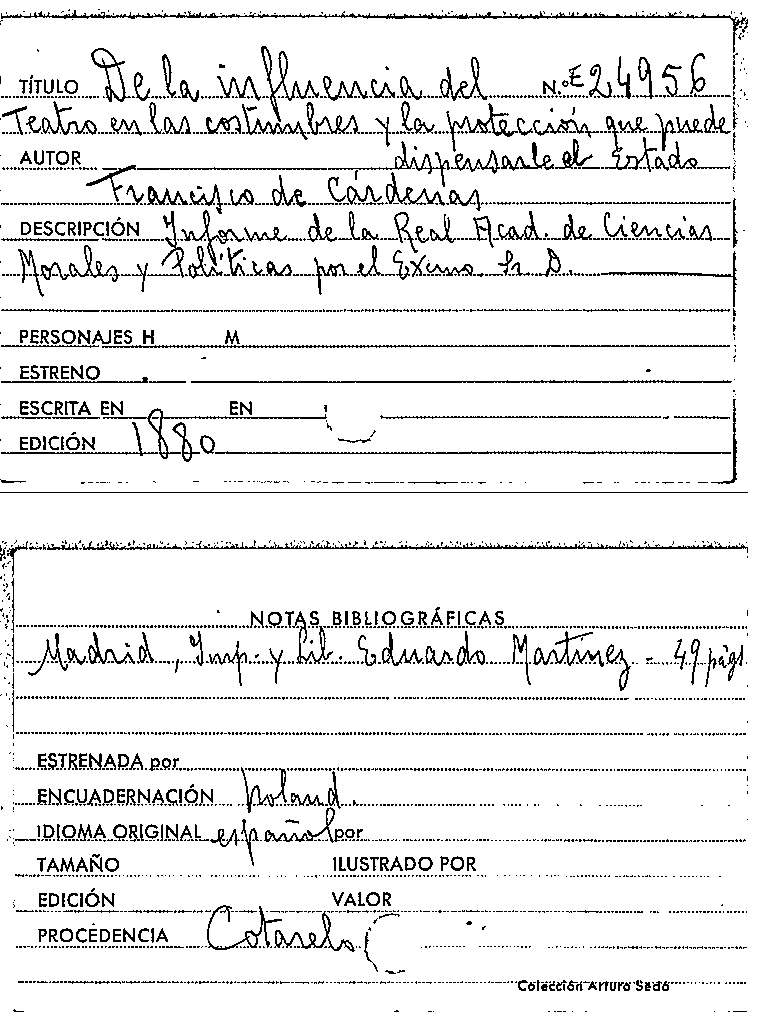 TÍTULO De la influencia del N.º E 24956
Teatro en las costumbres y la protección que puede
AUTOR dispensarle el Estado
Francisco de Cárdenas
DESCRIPCIÓN Informe de la Real Acad. de Ciencias
Morales y Políticas por el Excmo. Sr. D.
PERSONAJES H M
ESTRENO
ESCRITA EN EN
EDICIÓN 1880
NOTAS BIBLIOGRÁFICAS
Madrid, Imp. y Lib. Eduardo Martinez - 49 págs
ESTRENADA por
ENCUADERNACIÓN holand.
IDIOMA ORIGINAL español por
TAMAÑO ILUSTRADO POR
EDICIÓN VALOR
PROCEDENCIA Cotarelo
Colección Arturo Sedó